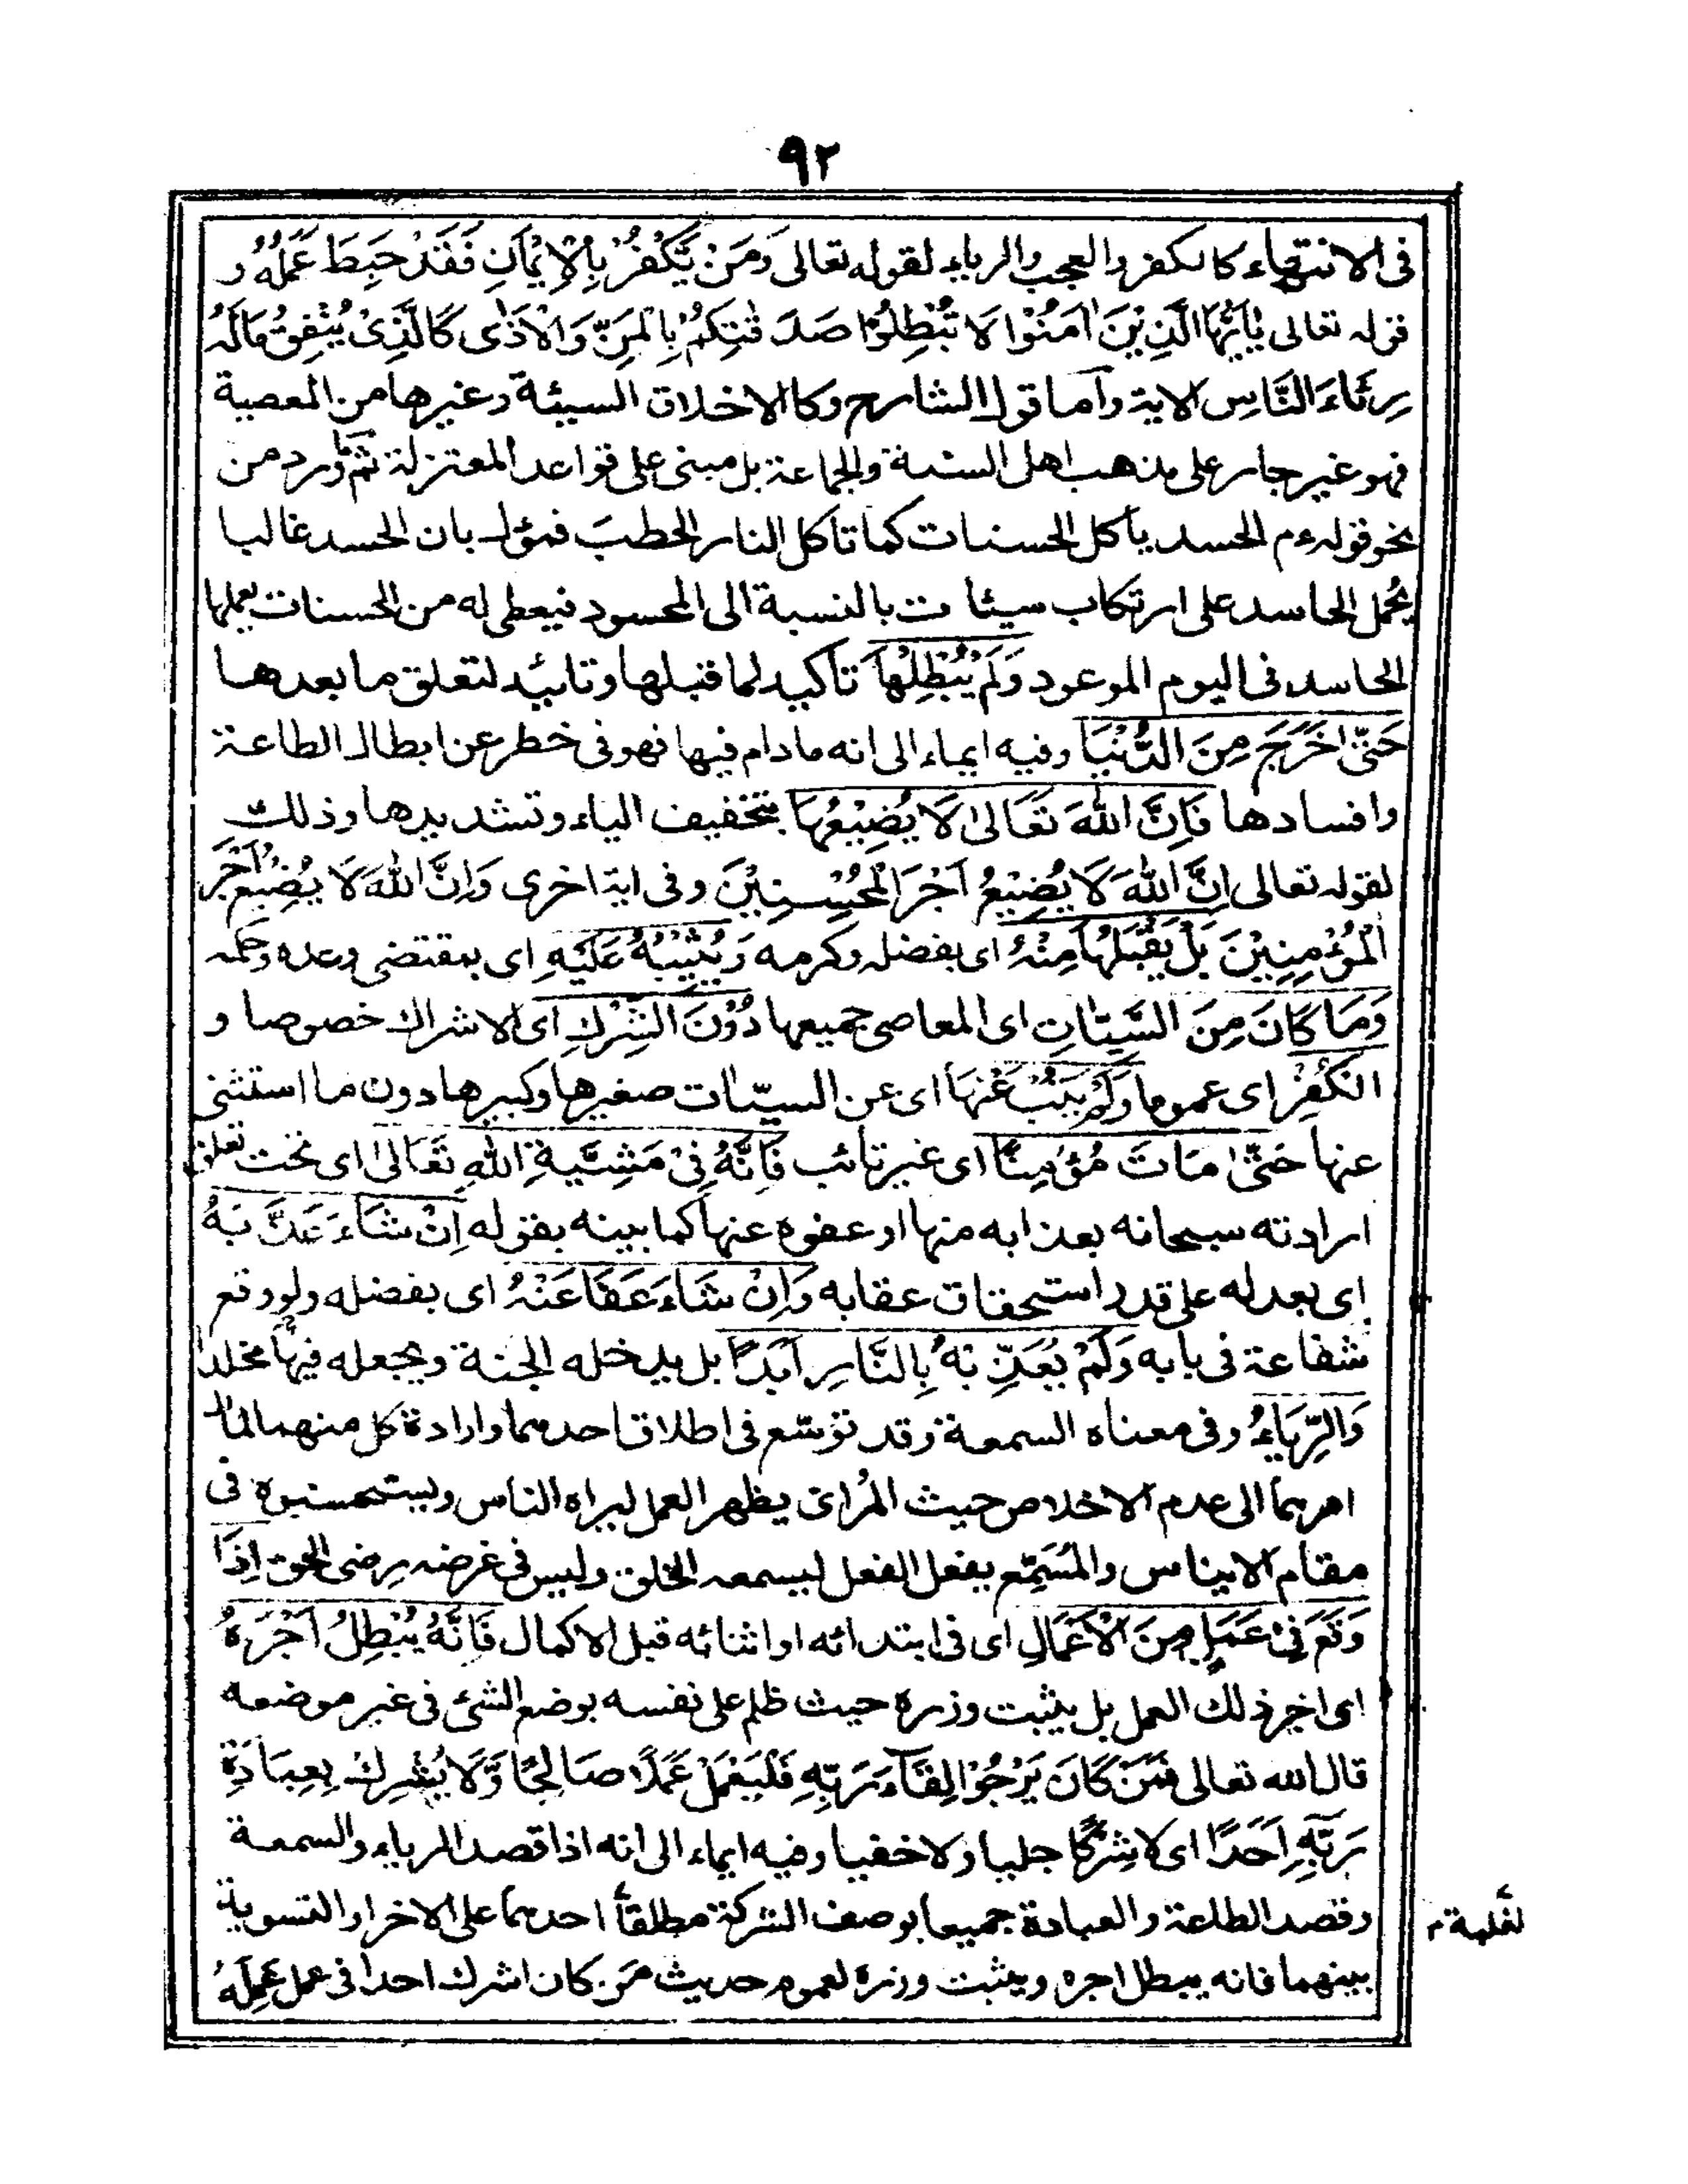 ٩٢
فى الانتهاء كالكفر والعجب والرياء لقوله تعالى وَمَنْ يَّكْفُرْ بِالْاِيْمَانِ فَقَدْ حَبِطَ عَمَلُهُ و
قوله تعالى يٰاَيُّهَا الَّذِيْنَ اٰمَنُوْا لَا تُبْطِلُوْا صَدَقٰتِكُمْ بِالْمَنِّ وَالْاَذٰى كَالَّذِىْ يُنْفِقُ مَالَهُ
رِئَاءَ النَّاسِ الاية وآما قول الشارح وكالاخلاق السيئة وغيرها من المعصية
فهو غير جار على مذهب اهل السنة والجماعة بل مبنى على قواعد المعتزلة ثم ورد من
نحو قوله ءم الحسد يأكل الحسنات كما تاكل النار الحطبَ فمؤل بان الحسد غالبا
يحمل الحاسد على ارتكاب سيئات بالنسبة الى المحسود فيعطى له من الحسنات بعملها
الحاسد فى اليوم الموعود وَلَمْ يُبْطِلْهَا تاكيد لما قبلها وتائيد لتعلق ما بعدها
حَتّٰى خَرَجَ مِنَ الدُّنْيَا وفيه ايماء الى انه مادام فيها فهو فى خطر عن ابطال الطاعة
وافسادها فَاِنَّ اللّٰهَ تَعَالٰى لَا يُضِيْعُهَا بتخفيف الياء وتشديدها وذلك
لقوله تعالى اِنَّ اللّٰهَ لَا يُضِيْعُ اَجْرَ الْمُحْسِنِيْنَ وفى اية اخرى وَاِنَّ اللّٰهَ لَا يُضِيْعُ اَجْرَ
الْمُؤْمِنِيْنَ بَلْ يَقْبَلُهَا مِنْهُ اى بفضله وكرمه وَيُثِيْبُهُ عَلَيْهِ اى بمقتضى وعده وحكمه
وَمَا كَانَ مِنَ السَّيِّاٰتِ اى المعاصى جميعها دُوْنَ الشِّرْكِ اى الاشراك خصوصا و
الْكُفْرِ اى عموما وَلَمْ يَتُبْ عَنْهَا اى عن السيّاٰت صغيرها وكبيرها دون ما استثنى
عنها حَتّٰى مَاتَ مُؤْمِنًا اى غير تائب فَاِنَّهُ فِىْ مَشِيَّةِ اللّٰهِ تَعَالٰى اى تحت تعلق
ارادته سبحانه بعذابه منها او عفوه عنها كما بينه بقوله اِنْ شَاءَ عَذَّبَهُ
اى بعدله على قدر استحقاق عقابه وَاِنْ شَاءَ عَفَا عَنْهُ اى بفضله ولو وقع
شفاعة فى بابه وَلَمْ يُعَذِّبْهُ بِالنَّارِ اَبَدًا بل يدخله الجنة ويجعله فيها مخلدا
وَالرِّيَاءُ وفى معناه السمعة وقد توسّع فى اطلاق احدهما وارادة كل منهما لمال
امرهما الى عدم الاخلاص حيث المُرائى يظهر العمل ليراه الناس ويستحسنوه فى
مقام الايناس والمُسَمِّع يفعل الفعل ليسمعه الخلق وليس فى غرضه رضى الحق اِذَا
وَقَعَ فِىْ عَمَلٍ مِنَ الْاَعْمَالِ اى فى ابتدائه او اثنائه قبل الاكمال فَاِنَّهُ يُبْطِلُ اَجْرَهُ
اى اجر ذلك العمل بل يثبت وزره حيث ظلم على نفسه بوضع الشئ فى غير موضعه
قال الله تعالى فَمَنْ كَانَ يَرْجُوْا لِقَآءَ رَبِّهِ فَلْيَعْمَلْ عَمَلًا صَالِحًا وَّلَا يُشْرِكْ بِعِبَادَةِ
رَبِّهِ اَحَدًا اى لا شِرْكًا جليا ولا خفيا وفيه ايماء الى انه اذا قصد الرياء والسمعة
وقصد الطاعة والعبادة جميعا بوصف الشركة مطلقا احدهما على الاخر او التسوية
لغلبة م
بينهما فانه يبطل اجره ويثبت وزره لعموم حديث مَن كان اشرك احدا فى عمل عَمِلَهُ